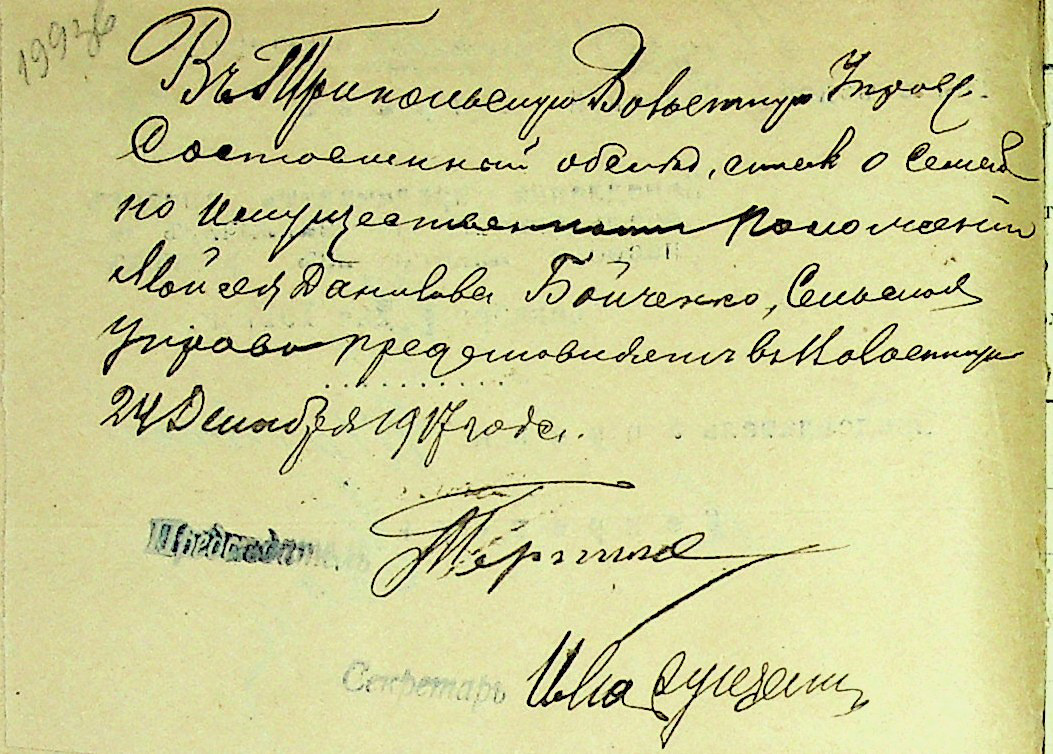 19936
Въ Трикольскую Волостную Управу
Составленный о семей
но имущественном положении
Мойсея Данилова Бойченко, Сельская
Управа представляет в Волостную
24 Декабря 1917 года.
Председатель
Секретарь